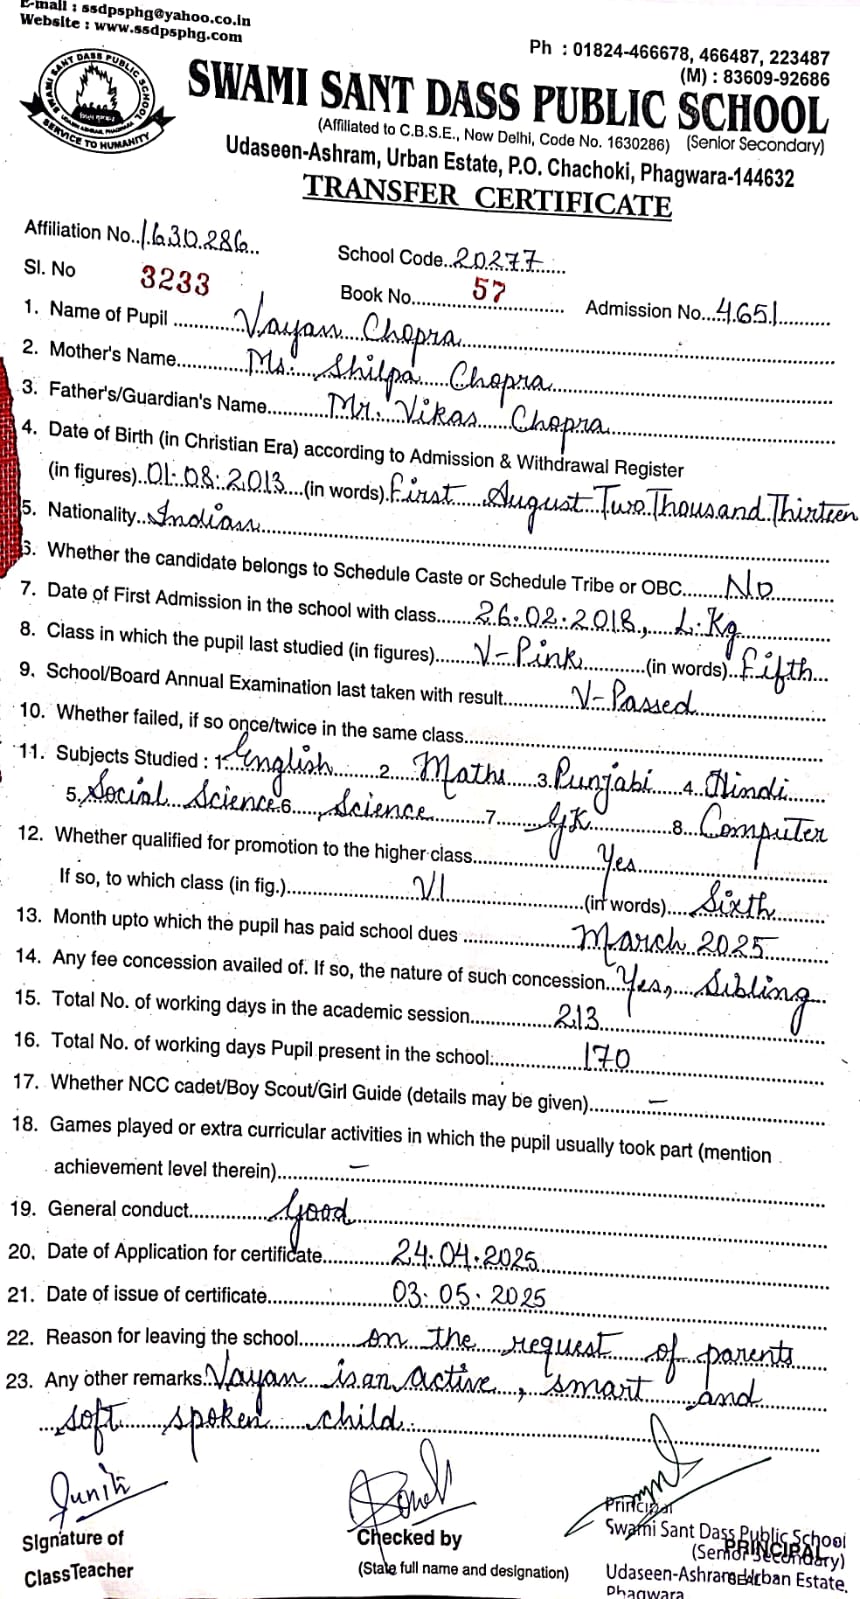 E-mail : ssdpsphg@yahoo.co.in
Website : www.ssdpsphg.com
Ph : 01824-466678, 466487, 223487
(M) : 83609-92686
SWAMI SANT DASS PUBLIC SCHOOL
SWAMI SANT DASS PUBLIC SCHOOL
SERVICE TO HUMANITY
(Affiliated to C.B.S.E., Now Delhi, Code No. 1630286) (Senior Secondary)
Udaseen-Ashram, Urban Estate, P.O. Chachoki, Phagwara-144632
TRANSFER CERTIFICATE
Affiliation No. 1630286 School Code 20277
Sl. No 3233 Book No. 57 Admission No. 4651
1. Name of Pupil Vayam Chopra
2. Mother's Name Ms. Shilpa Chopra
3. Father's/Guardian's Name Mr. Vikas Chopra
4. Date of Birth (in Christian Era) according to Admission & Withdrawal Register
(in figures) 01.08.2013 (in words) First August Two Thousand Thirteen
5. Nationality Indian
6. Whether the candidate belongs to Schedule Caste or Schedule Tribe or OBC No
7. Date of First Admission in the school with class 26.02.2018, L.Kg
8. Class in which the pupil last studied (in figures) V-Pink (in words) Fifth
9. School/Board Annual Examination last taken with result V-Passed
10. Whether failed, if so once/twice in the same class
11. Subjects Studied : 1. English 2. Maths 3. Punjabi 4. Hindi
5. Social Science 6. Science 7. GK 8. Computer
12. Whether qualified for promotion to the higher class Yes
If so, to which class (in fig.) VI (in words) Sixth
13. Month upto which the pupil has paid school dues March 2025
14. Any fee concession availed of. If so, the nature of such concession Yes, Sibling
15. Total No. of working days in the academic session 213
16. Total No. of working days Pupil present in the school 170
17. Whether NCC cadet/Boy Scout/Girl Guide (details may be given) –
18. Games played or extra curricular activities in which the pupil usually took part (mention
achievement level therein) –
19. General conduct Good
20. Date of Application for certificate 24.04.2025
21. Date of issue of certificate 03.05.2025
22. Reason for leaving the school on the request of parents
23. Any other remarks Vayan is an active, smart and
soft spoken child.
Signature of
Class Teacher
Checked by
(State full name and designation)
Principal
Swami Sant Dass Public School
(Senior Secondary)
PRINCIPAL
Udaseen-Ashram, Urban Estate,
SEAL
Phagwara